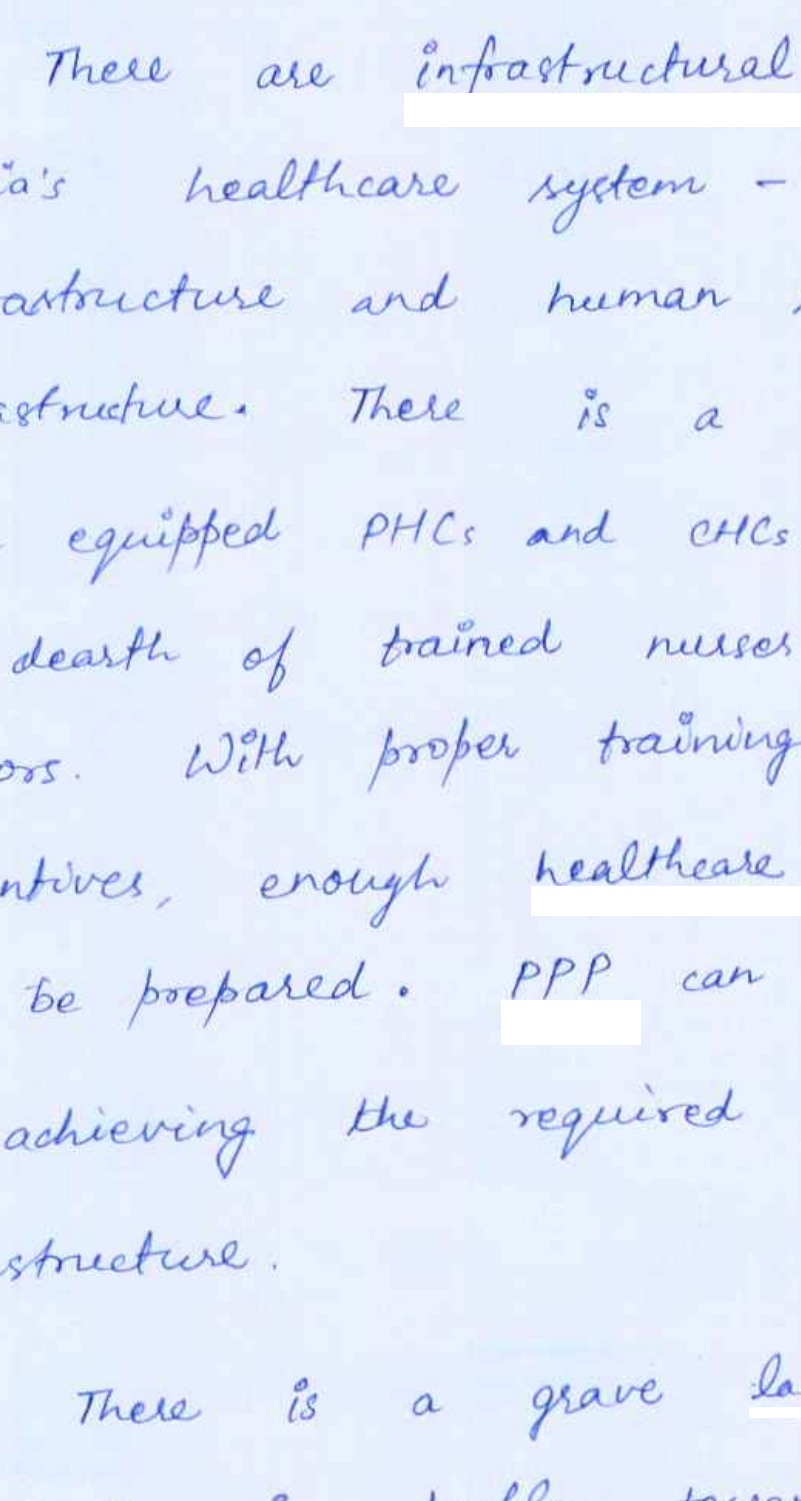 There are infrastructural
ia's healthcare system -
astructure and human
structure. There is a
equipped PHCs and CHCs
dearth of trained nurses
ors. With proper training
ntives, enough healthcare
be prepared. PPP can
achieving the required
structure.
There is a grave la